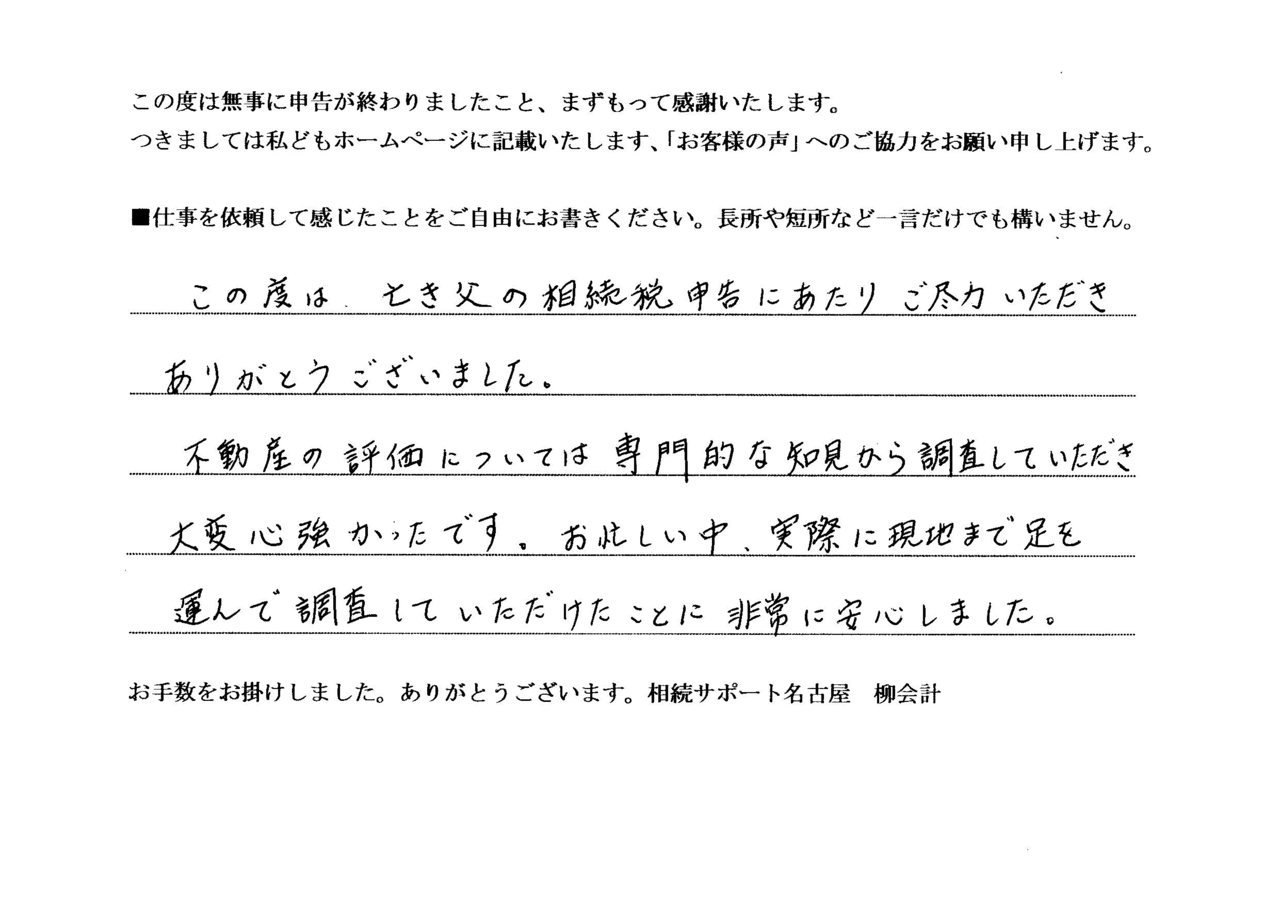 この度は無事に申告が終わりましたこと、まずもって感謝いたします。
つきましては私どもホームページに記載いたします、「お客様の声」へのご協力をお願い申し上げます。
■仕事を依頼して感じたことをご自由にお書きください。長所や短所など一言だけでも構いません。
この度は、亡き父の相続税申告にあたりご尽力いただき
ありがとうございました。
不動産の評価については専門的な知見から調査していただき
大変心強かったです。お忙しい中、実際に現地まで足を
運んで調査していただけたことに非常に安心しました。
お手数をお掛けしました。ありがとうございます。相続サポート名古屋　柳会計